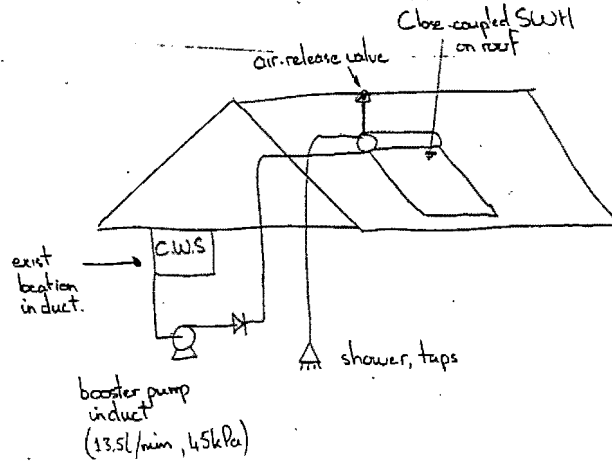 Close-coupled SWH
on roof
air-release valve
C.W.S
exist
location
in duct.
shower, taps
booster pump
in duct
(13.5l/min, 45kPa)